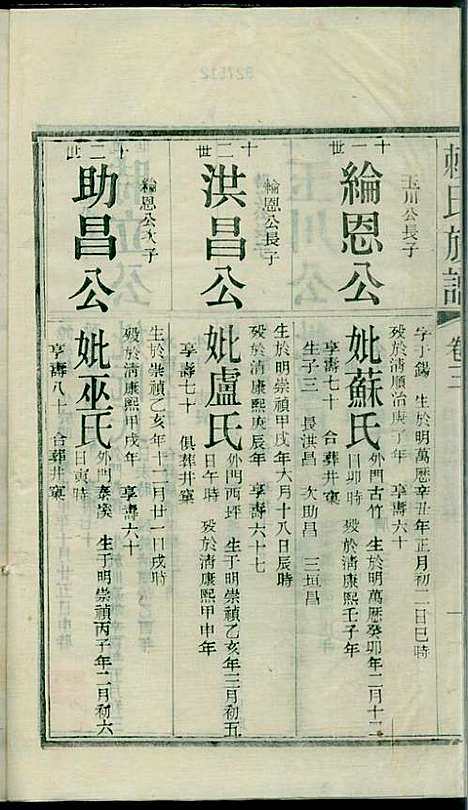 賴氏族譜 卷三
十一世
綸恩公
玉川公長子
字于錫 生於明萬曆辛丑年正月初二日巳時
歿於清順治庚子年 享壽六十
妣蘇氏
外門古竹 生於明萬曆癸卯年二月十二
日卯時 歿於清康熙壬子年
享壽七十 合葬井窠
生子三 長洪昌 次助昌 三垣昌
十二世
洪昌公
綸恩公長子
生於明崇禎甲戌年六月十八日辰時
歿於清康熙庚辰年 享壽六十七
妣盧氏
外門西坪 生于明崇禎乙亥年三月初五
日午時 歿於清康熙甲申年
享壽七十 俱葬井窠
十二世
助昌公
綸恩公次子
生於崇禎乙亥年十二月廿一日戌時
歿於清康熙甲戌年 享壽六十
妣巫氏
外門泰溪 生于明崇禎丙子年二月初六
日寅時
享壽八十 合葬井窠